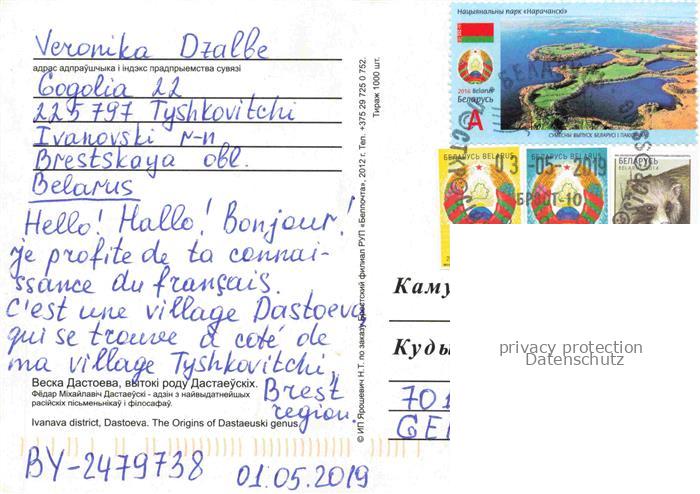 Veronika Dzalbe
адрас адпраўшчыка і індэкс прадпрыемства сувязі
Gogolia 22
225797 Tyshkovitchi
Ivanovski r-n
Brestskaya obl.
Belarus
Hello! Hallo! Bonjour!
je profite de ta connai-
ssance du français.
C'est une village Dastoeva
qui se trouve à coté de
ma village Tyshkovitchi,
Brest
region.
Веска Дастоева, вытокі роду Дастаеўскіх.
Фёдар Міхайлавіч Дастаеўскі - адзін з найвыдатнейшых
расійскіх пісьменнікаў і філосафаў.
Ivanava district, Dastoeva. The Origins of Dastaeuski genus.
BY-2479738
01.05.2019
© ИП Ярошевич Н.Т. по заказу Брестский филиал РУП «Белпочта», 2012 г. Тел. +375 29 725 0 752.
Тираж 1000 шт.
Нацыянальны парк «Нарачанскі»
2016 Belarus
Беларусь
A
БЕЛАРУСЬ BELARUS
БЕЛАРУСЬ BELARUS
БЕЛАРУСЬ
03-05-2019
БРЭСТ-10
Каму
Куды
701
GE
privacy protection
Datenschutz